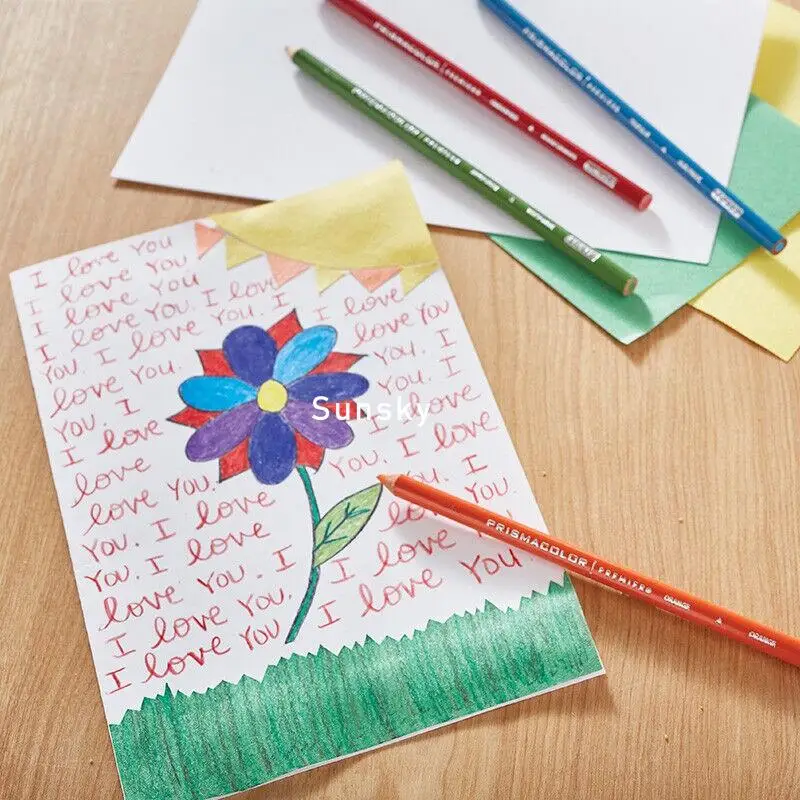 I love You
I love You
I love You
I love You. I love
You. I love You. I I love
love You. love You
You. I You. I
I love You. I
love I love
love You. You. I love
You. I love You. I
You. I love You.
love You. I I love
I love You. I love You
I love You
Sunsky
PRISMACOLOR PREMIER ORANGE ORANGE
PRISMACOLOR PREMIER
PRISMACOLOR PREMIER
PRISMACOLOR PREMIER